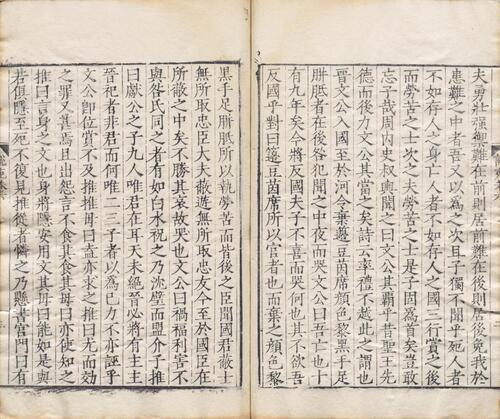 夫勇壯強禦難在前則居前難在後則居後免我於
患難之中者吾又以為之次且子獨不聞乎死人者
不如存人之身亡人者不如存人之國三行賞之後
而勞苦之士次之夫勞苦之士是子固為首矣豈敢
忘子哉周內史叔輿聞之曰文公其霸乎昔聖王先
德而後力文公其當之矣詩云率禮不越此之謂也
晉文公入國至於河令棄籩豆茵席顏色黎黑手足
胼胝者在後咎犯聞之中夜而哭文公曰吾亡也十
有九年矣今將反國夫子不喜而哭何也其不欲吾
反國乎對曰籩豆茵席所以官者也而棄之顏色黎
黑手足胼胝所以執勞苦而皆後之臣聞國君蔽士
無所取忠臣大夫蔽遊無所取忠友今至於國臣在
所蔽之中矣不勝其哀故哭也文公曰禍福利害不
與咎氏同之者有如白水祝之乃沈璧而盟介子推
曰獻公之子九人唯君在耳天未絕晉必將有主主
晉祀者非君而何唯二三子者以為己力不亦誣乎
文公即位賞不及推推母曰盍亦求之推曰尤而效
之罪又甚焉且出怨言不食其食其母曰亦使知之
推曰言身之文也身將隱安用文其母曰能如是與
若俱隱至死不復見推從者憐之乃懸書宮門曰有